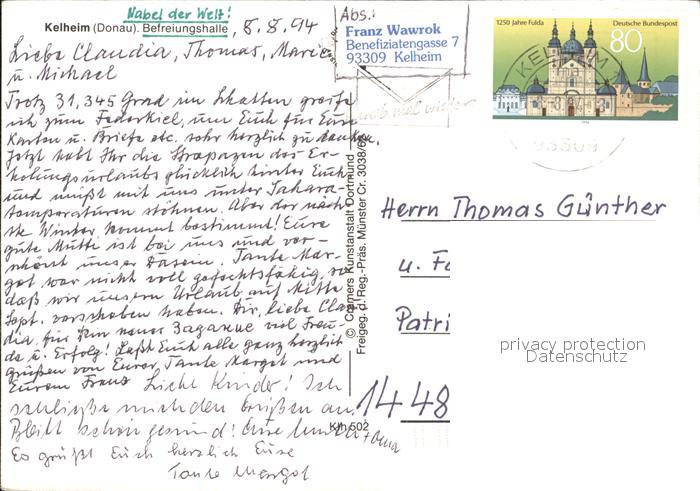 Nabel der Welt!
Kelheim (Donau). Befreiungshalle, 8.8.94
Liebe Claudia, Thomas, Marie
u. Michael
Trotz 31,345 Grad im Schatten greife
ich zum Federkiel, um Euch für Eure
Karten u. Briefe etc. sehr herzlich zu danken.
Jetzt habt Ihr die Strapazen des Er-
holungsurlaubs glücklich hinter Euch
und müßt mit uns unter Sahara-
temperaturen stöhnen. Aber der näch-
ste Winter kommt bestimmt! Eure
gute Mutti ist bei uns und ver-
schönt unser Dasein. Tante Mar-
got war nicht voll gefechtsfähig, so
daß wir unsern Urlaub auf Mitte
Sept. verschoben haben. Dir, liebe Clau
dia, für Dein neues viel Freu-
de u. Erfolg! Laßt Euch alle ganz herzlich
grüßen von Eurer Tante Margot und
Eurem Franz Liebe Kinder! Ich
schließe mich den Grüßen an
Bleibt schön gesund! Eure + Oma
Es grüßt Euch herzlich Eure
Tante Margot
Abs.:
Franz Wawrok
Benefiziatengasse 7
93309 Kelheim
mal wieder
© Cramers Kunstanstalt Dortmund
Freigeg. d. Reg.-Präs. Münster Cr. 3038/68
Klh 502
1250 Jahre Fulda
Deutsche Bundespost
80
1994
KELHEIM
93309
Herrn Thomas Günther
u. Fa
Patri
1448
privacy protection
Datenschutz